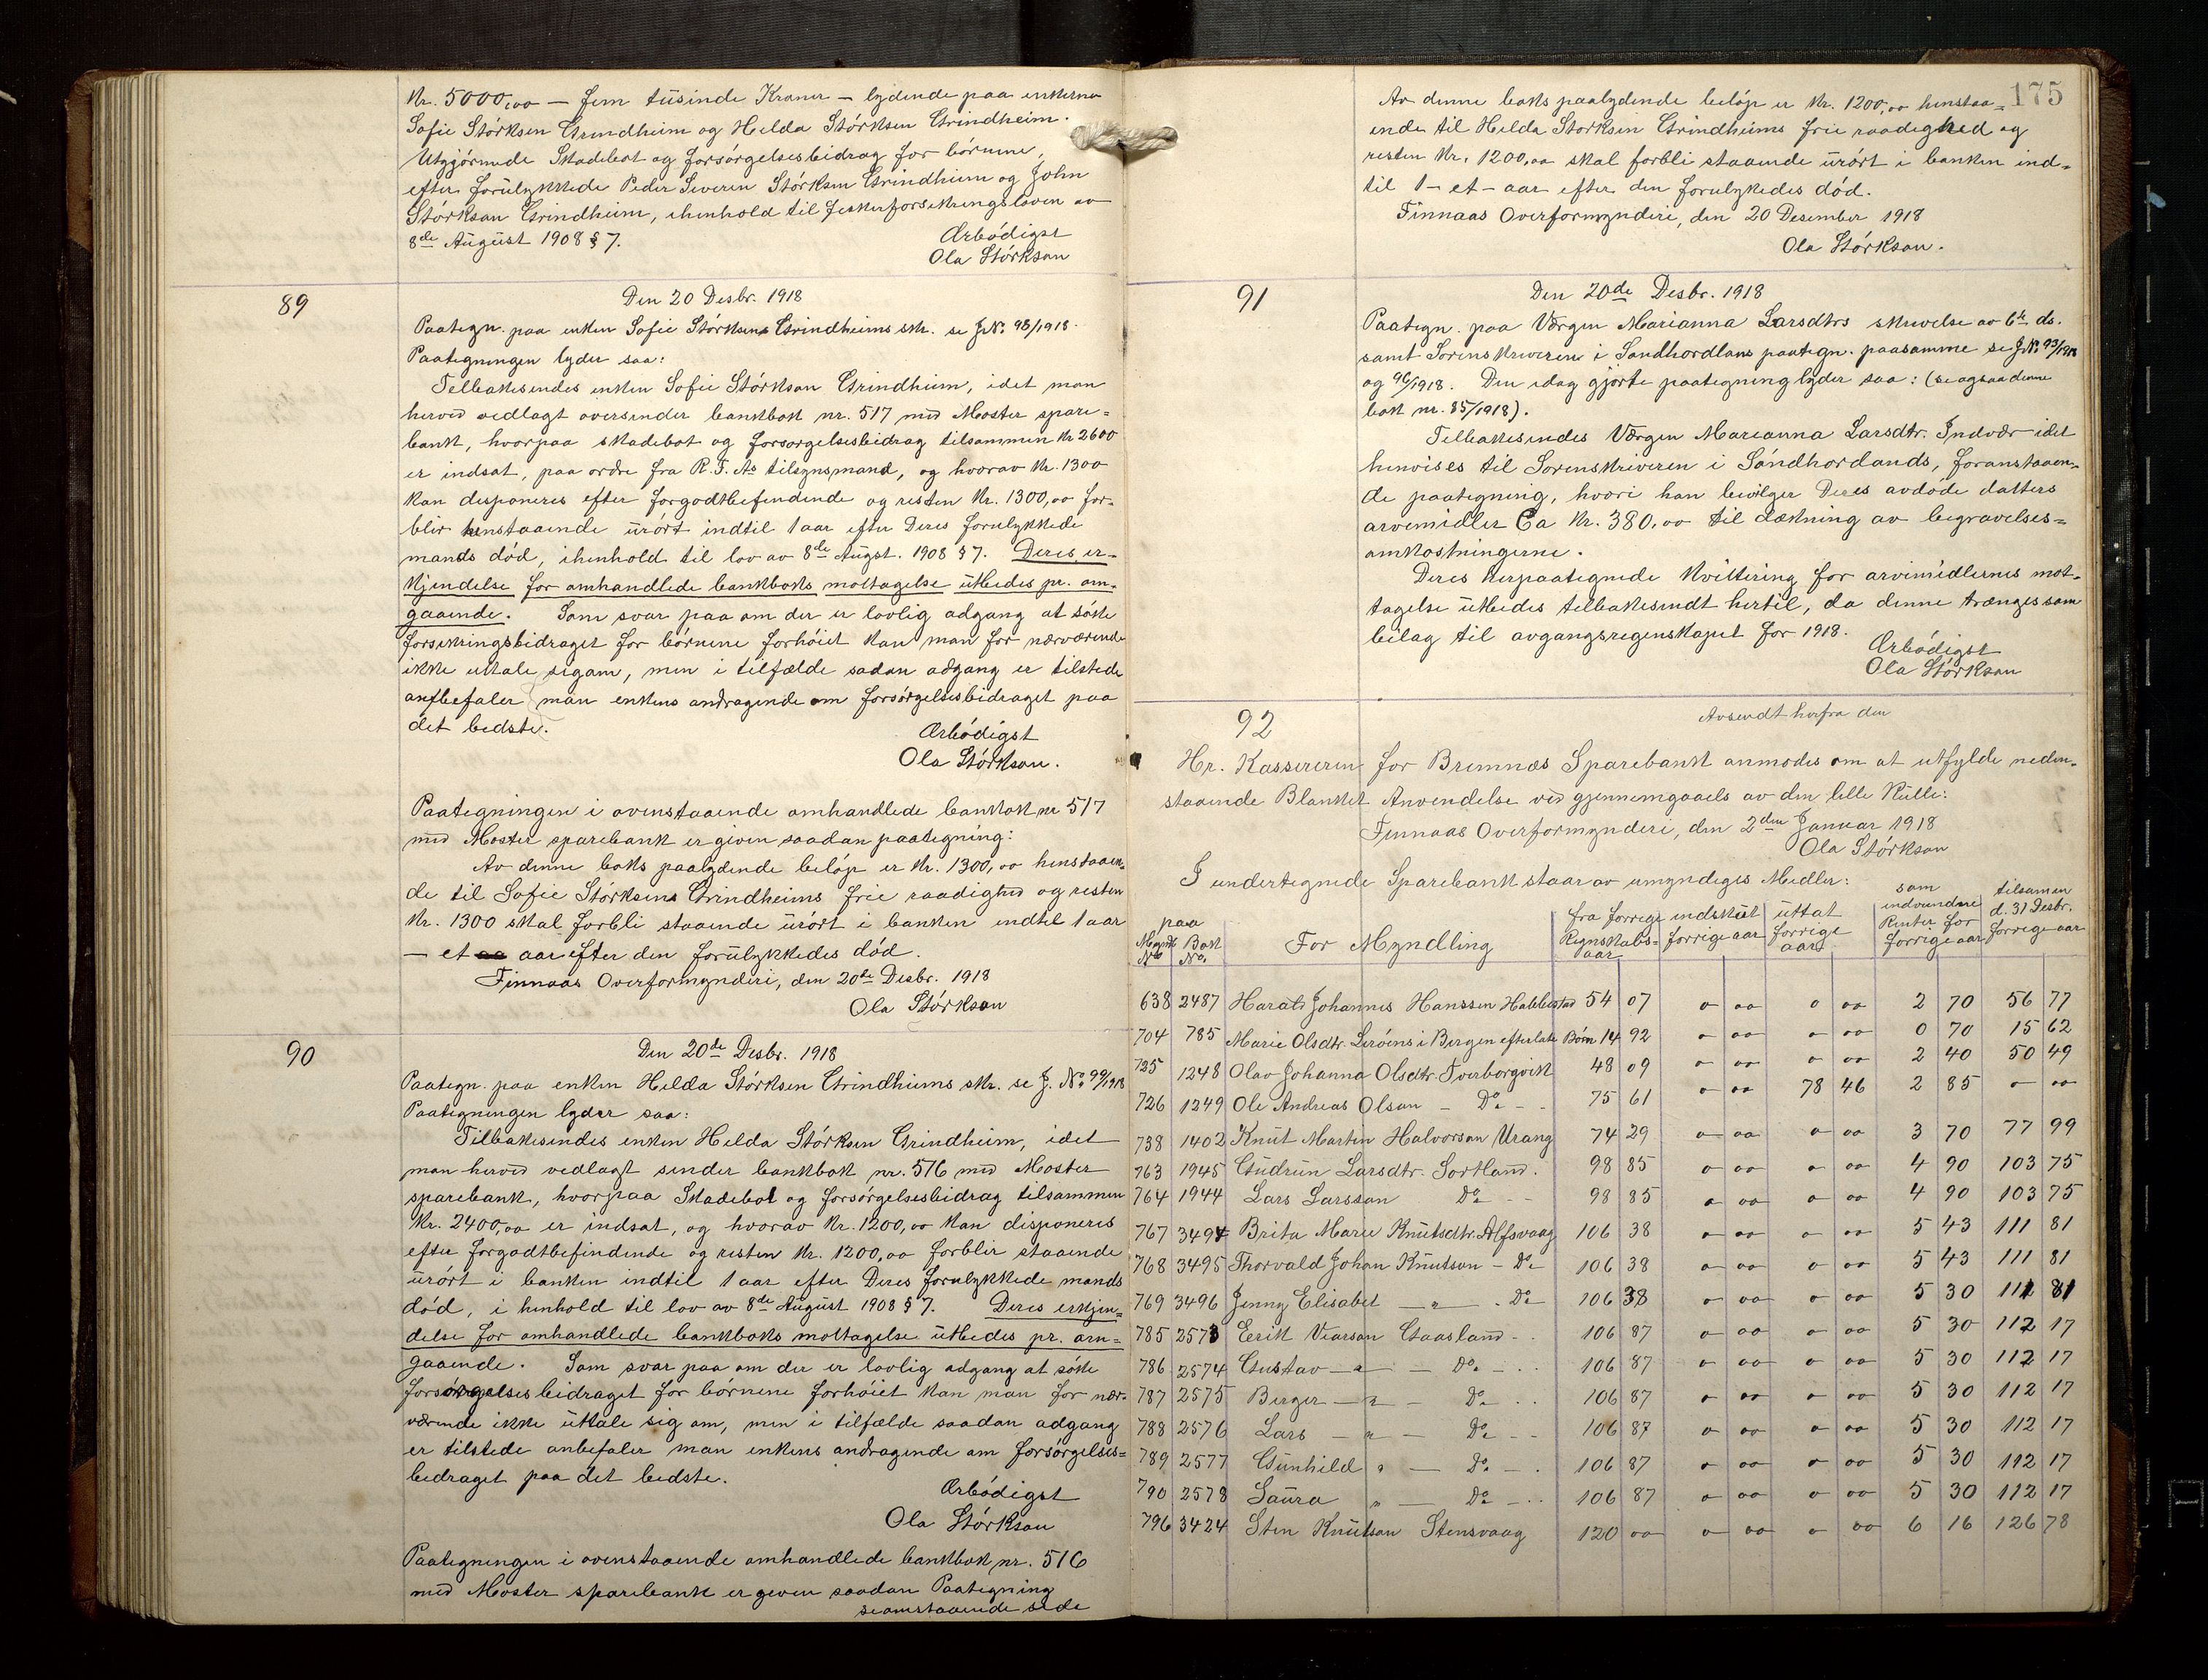 Kr. 5000,oo — fem tusinde Kroner — lydende paa enkerne
Sofie Størksen Grindheim og Helda Størksen Grindheim.
Utgjørende Skadebot og forsørgelsesbidrag for børnene,
efter forulykkede Peder Severin Størksen Grindheim og John
Størkson Grindheim, ihenhold til fiskerforsikringsloven av
8de August 1908 § 7.
Ærbødigst
Ola Størkson
89
Den 20 Desbr. 1918
Paategn. paa enken Sofie Størksens Grindheims skr. se J.No. 98/1918.
Paategningen lyder saa:
Telbakesendes enken Sofie Størkson Grindheim, idet man
herved vedlagt oversender bankbok nr. 517 med Moster spare=
bank, hvorpaa skadebot og forsorgelsesbidrag tilsammen Kr 2600
er indsat, paa ordre fra R.F.As tilsynsmand, og hvorav Kr. 1300
kan disponeres efter forgodtbefindende og resten Kr. 1300,oo for-
blir henstaaende urørt indtil 1 aar efter Deres forulykkede
mands død, ihenhold til lov av 8de Augst. 1908 § 7. Deres er-
kjendelse for omhandlede bankboks mottagelse utbedes pr. om-
gaaende. Som svar paa om der er lovlig adgang at søke
forsikringsbidraget for børnene forhøiet kan man for nærværende
ikke uttale sigom, men i tilfælde sadan adgang er tilstede
anfbefaler man enkens andragende om forsørgelsesbidraget paa
det bedste.
Ærbødigst
Ola Størkson.
Paategningen i ovenstaaende omhandlede bankbok nr 517
med Moster sparebank er given saadan paategning:
Av denne boks paalydende beløp er Kr. 1300,oo henstaaen-
de til Sofie Størksens Grindheims frie raadighed og resten
Kr. 1300 skal forbli staaende urørt i banken indtil 1 aar
— et aar efter den forulykkedes død.
Finnaas Overformynderi, den 20de Desbr. 1918
Ola Størkson
90
Den 20de Desbr. 1918
Paategn. paa enken Helda Størksen Grindheims skr. se J. No. 99/1918
Paategningen lyder saa:
Tilbakesendes enken Helda Størksen Grindheim, idet
man herved vedlagt sender bankbok nr. 516 med Moster
sparebank, hvorpaa Skadebot og forsørgelsesbidrag tilsammen
Kr. 2400,oo er indsat, og hvorav Kr. 1200,oo kan disponeres
efter forgodtbefindende og resten Kr. 1200,oo forblir staaende
urørt i banken indtil 1 aar efter Deres forulykkede mands
død, i henhold til lov av 8de August 1908 § 7. Deres erkjen-
delse for omhandlede bankboks mottagelse utbedes pr. om=
gaaende. Som svar paa om der er lovlig adgang at søke
forsørgelsesbidraget for børnene forhøiet kan man for nær-
værende ikke uttale sig om, men i tilfælde saadan adgang
er tilstede anbefaler man enkens andragende om forsørgelses=
bedraget paa det bedste.
Ærbødigst
Ola Størkson
Paategningen i ovenstaaende omhandlede bankbok nr. 516
med Moster sparebank er given saadan Paategning
se omstaaende side
175
Av denne boks paalydende beløp er Kr. 1200,oo henstaa=
ende til Helda Størksin Grindheims frie raadighed og
resten Kr. 1200,oo skal forbli staaende urørt i banken ind=
til 1 — et — aar efter den forulykedes død.
Finnaas Overformynderi, den 20 Desember 1918
Ola Størkson.
91
Den 20de Desbr. 1918
Paategn. paa Værgen Marianna Larsdtrs skrivelse av 6te ds.
samt Sorenskriveren i Søndhordlans paategn. paasamme se J.No. 93/1918
og 96/1918. Den idag gjorte paategning lyder saa: (se ogsaa denne
bok nr. 85/1918).
Telbakesendes Værgen Marianna Larsdtr. Indvær idet
henvises til Sorenskriveren i Søndhordlands, foranstaaen-
de paategning, hvori han bevilger Deres avdøde datters
arvemidler Ca Kr. 380,oo til dækning av begravelses=
omkostningerne.
Deres herpaategnede kvittering for arvemidlernes mot-
tagelse utbedes telbakesendt hertil, da denne trænges som
bilag til avgangsregenskapet for 1918.
Ærbødigst
Ola Størkson
92
Avsendt herfra den
Hr. Kassereren for Bremnæs Sparebank anmodes om at utfylde neden-
staaende Blanket Anvendelse ved gjennemgaaels av den lille Rulle:
Finnaas Overformynderi, den 2den Januar 1918
Ola Størkson
I undertegnede Sparebank staar av umyndiges Medler:
paa Myndl. No. | Bok No. | For Myndling | fra forrige Regnskabs=aar | indskut forrige aar | uttat forrige aar | som indvundne Renter for forrige aar | tilsamen d. 31 Desbr. forrige aar
638 2487 Harald Johannes Hanssen Habbestad 54 07 o oo o oo 2 70 56 77
704 785 Marie Olsdtr. Lerøens i Bergen efterlate Børn 14 92 o oo o oo 0 70 15 62
725 1248 Olav Johanna Olsdtr. Tverborgvik 48 09 o oo o oo 2 40 50 49
726 1249 Ole Andreas Olson — Do. — 75 61 o oo 78 46 2 85 o oo
738 1402 Knut Martin Halvorson Urang 74 29 o oo o oo 3 70 77 99
763 1945 Gudrun Larsdtr. Sortland. 98 85 o oo o oo 4 90 103 75
764 1944 Lars Larsson Do. 98 85 o oo o oo 4 90 103 75
767 3494 Brita Marie Knutsdtr. Alfsvaag 106 38 o oo o oo 5 43 111 81
768 3495 Thorvald Johan Knutson — Do. 106 38 o oo o oo 5 43 111 81
769 3496 Jenny Elisabet — " — Do. 106 38 o oo o oo 5 30 111 81
785 2573 Eerik Viarson Gaasland 106 87 o oo o oo 5 30 112 17
786 2574 Gustav — " — Do. 106 87 o oo o oo 5 30 112 17
787 2575 Berger — " — Do. 106 87 o oo o oo 5 30 112 17
788 2576 Lars — " — Do. 106 87 o oo o oo 5 30 112 17
789 2577 Gunhild " — Do. 106 87 o oo o oo 5 30 112 17
790 2578 Laura " — Do. 106 87 o oo o oo 5 30 112 17
796 3424 Sten Knutson Stensvaag 120 oo o oo o oo 6 16 126 78